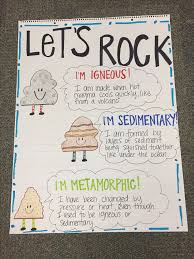 LET'S ROCK
I'M IGNEOUS!
I am made when hot
magma cools quickly like
from a volcano
I'M SEDIMENTARY!
I am formed by
layers of sediment
being squished together
like under the ocean.
I'M METAMORPHIC!
I have been changed by
pressure or heat, even though
I used to be igneous or
sedimentary.